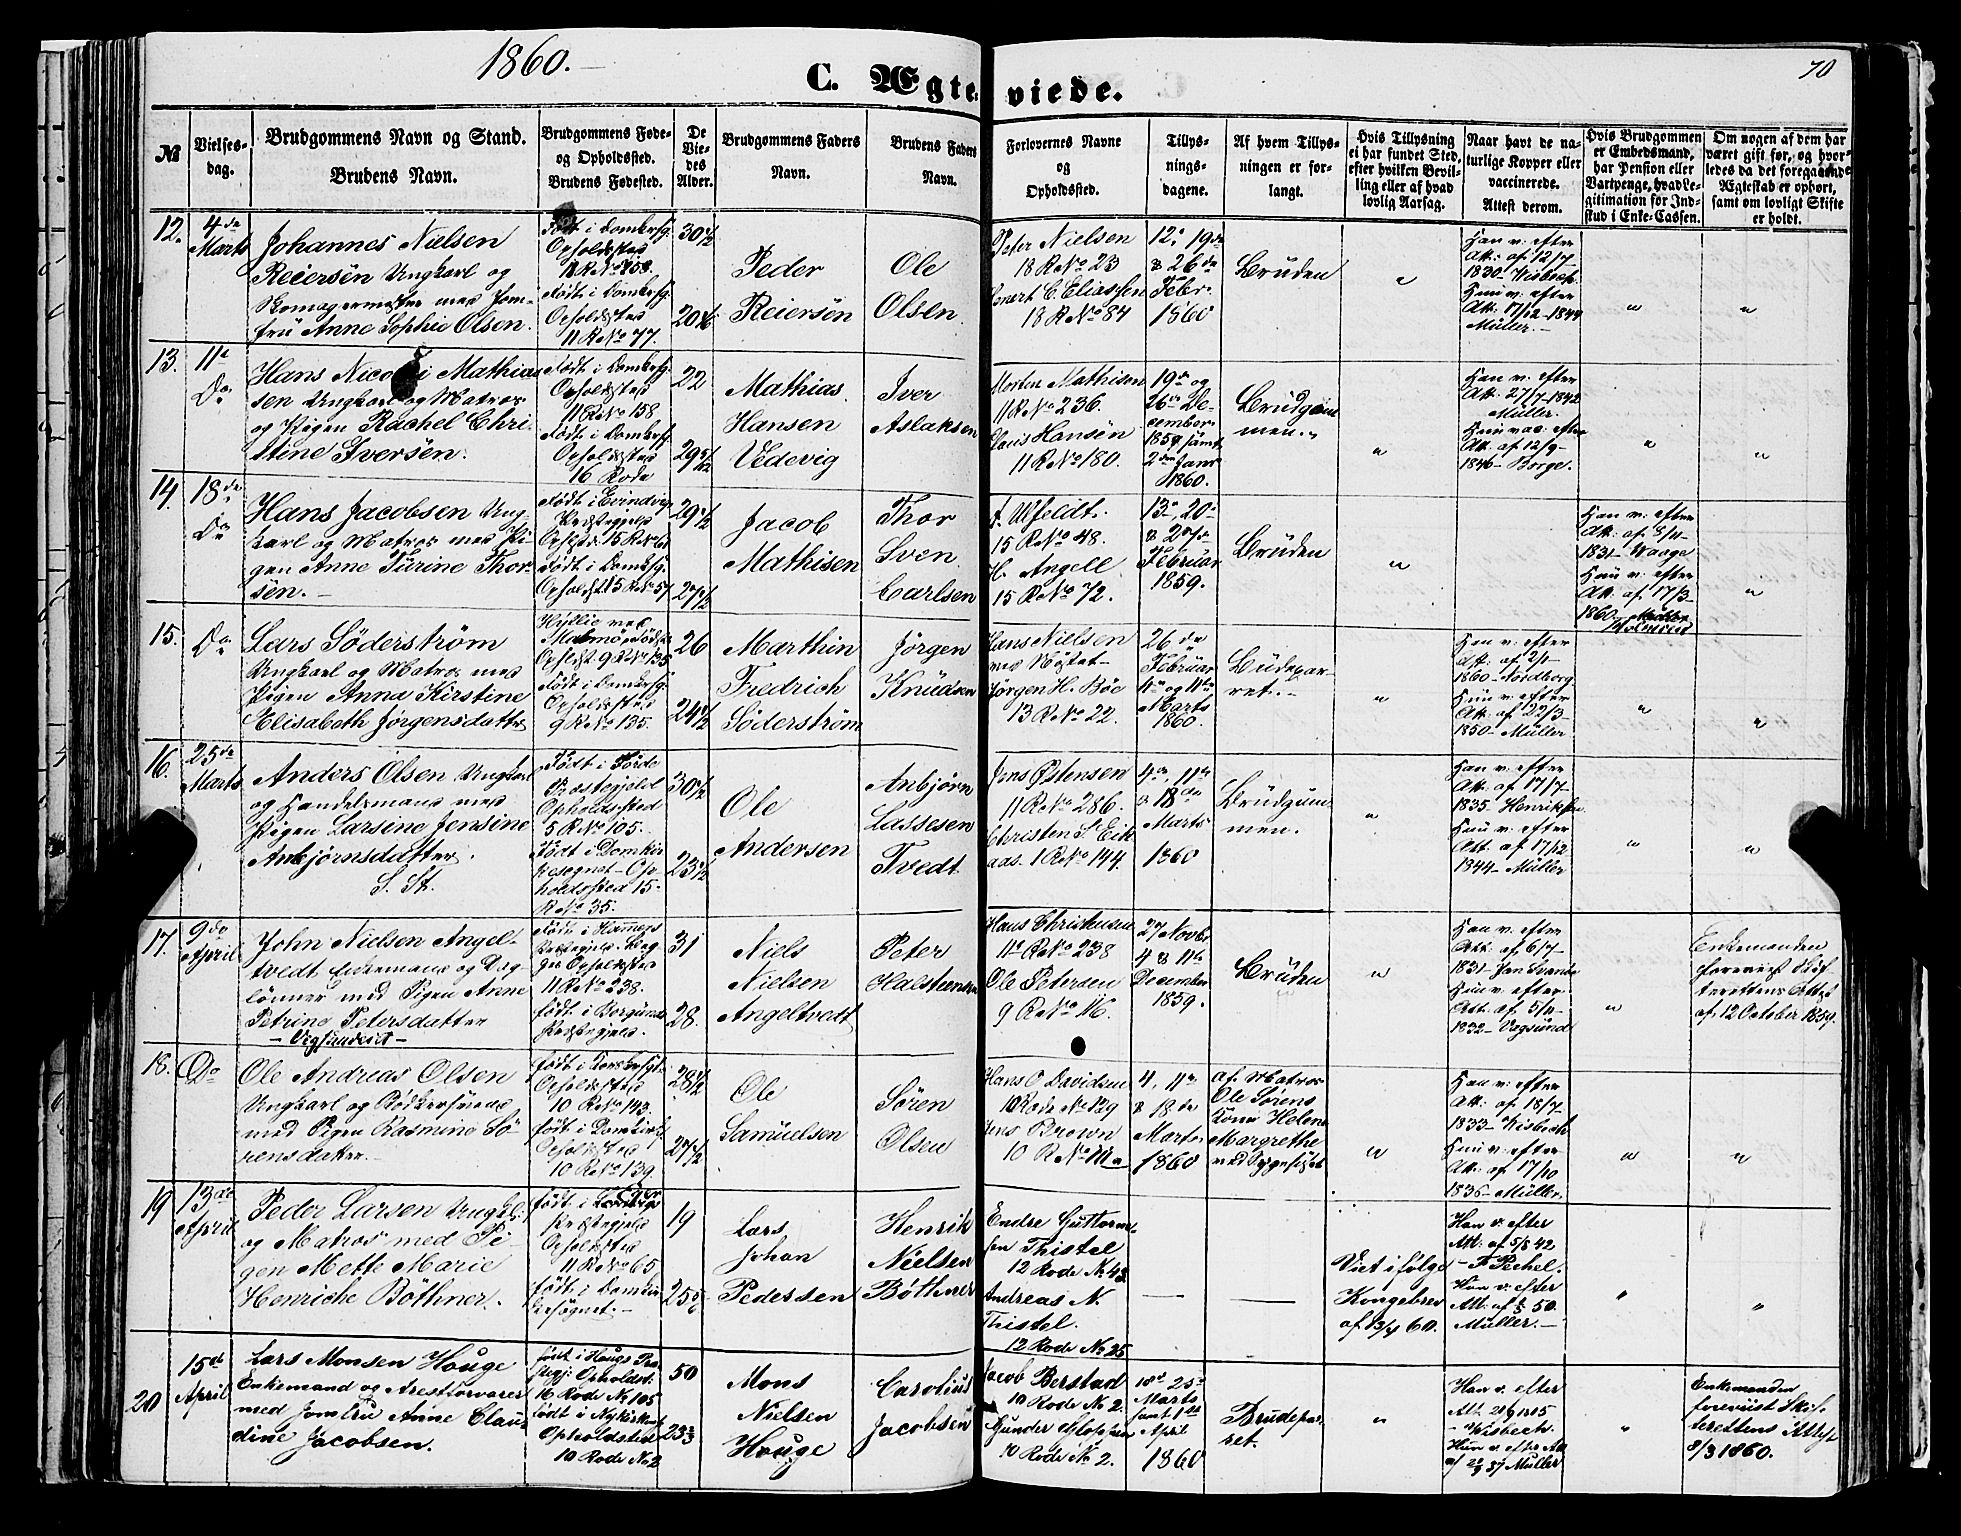 1860.
C. Ægteviede.
70
№
Vielses-
dag.
Brudgommens Navn og Stand.
Brudens Navn.
Brudgommens Føde-
og Opholdssted.
Brudens Fødested.
De
Vie-
des
Alder.
Brudgommens Faders
Navn.
Brudens Faders
Navn.
Forlovernes Navne
og
Opholdssted.
Tillys-
nings-
dagene.
Af hvem Tillys-
ningen er for-
langt.
Hvis Tillysning
ei har fundet Sted,
efter hvilken Bevil-
ling eller af hvad
lovlig Aarsag.
Naar havt de na-
turlige Kopper eller
vaccinerede.
Attest derom.
Hvis Brudgommen
er Embedsmand,
har Pension eller
Vartpenge, hvad Le-
gitimation for Ind-
skud i Enke-Cassen.
Om nogen af dem har
været gift før, og hvor-
ledes da det foregaaende
Ægteskab er ophørt,
samt om lovligt Skifte
er holdt.
12.
4de
Marts
Johannes Nielsen
Reiersen Ungkarl og
Skomagermester med Jom-
fru Anne Sophie Olsen.
Født i Domkersg.
Opholdssted
født i Domkersg.
Opholdssted
11 R. No 77.
30 1/2
Peder
Reiersen
Ole
Olsen
Peter Nielsen
18 R No 23
C. Eliassen
18 R No 84
12, 19de
& 26de
Febr.
1860
Bruden
"
Han v: efter
Att: af 12/7
1830 Wisbech.
Hun v: efter
Att. 17/12 1844
Müller.
"
"
13.
11te
Do
Hans Nicolai Mathias
sen Ungkarl og Matros
og Pigen Rachel Chri
stine Iversen.
Født i Domkersg.
Opholdssted
11 R No 158
Født i Domkersg.
Opholdssted
16 Rode
22
Mathias
Hansen
Vedevig
Iver
Aslaksen
Morten Mathisen
11 R No 236.
Claus Hansen
11 R No 180.
19de og
26de De-
cember
1859 samt
2den Janr
1860.
Brudgom
men.
"
Han v: efter
Att. 27/7 1842
Müller.
Hun vac: efter
Att. af 12/9
1846 Borge.
"
"
14.
18de
Do
Hans Jacobsen Ung-
karl og Matros med Pi
gen Anne Turine Thor-
sen.
Født i Evindvig
Præstegjeld
Født i Domksg.
Opholdst 15 R No 57
29 1/2
27 1/2
Jacob
Mathisen
Thor
Sven
Carlsen
F. Ulfeldt.
15 R No 48.
H. Angell
15 R No 72.
13de 20de
& 27de
Februar
1859.
Bruden
"
Han v: efter
Att: af 5/11
1831 Waage
Hun v: efter
Att: af 17/3
1860
"
15.
Do
Lars Söderström
Ungkarl og Matros med
Pigen Anna Kirstine
Elisabeth Jørgensdatter
Hyllie ved
Malmø Født
Opholdst 9 R No 135
Født i Domkersg.
Opholdssted
9 R No 135.
26
24 1/2
Marthin
Fredrich
Söderström
Jørgen
Knudsen
Hans Nielsen
ved Nøstet
Jørgen H. Bøe
13 R No 22.
26de
Februar
4de og 11te
Marts
1860.
Brudepar-
ret.
"
Han v: efter
Att: af 2/1
1860 Nordborg
Hun v: efter
Att: af 22/3
1850 Müller
"
"
16.
25de
Marts
Anders Olsen Ungkarl
og Handelsmand med
Pigen Larsine Jensine
Anbjørnsdatter.
S. St.
Født i Førde
Præstegjeld
Opholdssted
5 R No 105.
Født i Domkir
kesognet Op-
holdssted 15
R No 35.
30 1/2
23 1/2
Ole
Andersen
Anbjørn
Lassesen
Tvedt
Jens Østensen
11 R No 286.
Christen S. Eik
aas. 1 R No 144.
4de, 11te
& 18de
Marts
1860
Brudgum-
men.
"
Han v: efter
Att: af 17/7
1835 Henriksen
Hun v: efter
Att: af 17/12
1844 Müller
"
"
17.
9de
April
John Nielsen Angel-
tvedt Enkemand og Dag-
lønner med Pigen Anne
Petrine Petersdatter
Vegsundent
Født i Hammers
Opholdssted
11 R No 238.
født i Borgunds
Præstegjeld
31
28.
Niels
Nielsen
Angeltvedt
Peter
Halsteensen
Hans Christensen
11 R No 238
Ole Petersen
9 R No 16.
27 Novbr
4 & 11te
December
1859.
Bruden
"
Han v: efter
Att: af 6/7
1831
Hun v: efter
Att: af 5/11
1832 Vegsund
"
Enkemanden
foreviist Skif
terettens Attest
af 12 October 1859.
18.
Do
Ole Andreas Olsen
Ungkarl og Bødkersvend
med Pigen Rasmine Sø-
rensdatter.
født i
Opholdssted
10 R No 143.
født i Domkirks.
Opholdssted
10 R No 139.
28 1/2
27 1/2
Ole
Samuelsen
Søren
Olsen
Hans O Davidsen
10 Rode No 129
Jens Brown
4, 11te
& 18de
Marts
1860
af Matros
Ole Sørens
Kone Helene
Margrethe
"
Han v: efter
Att: af 18/7
1833 Wisbech
Hun v: efter
Att: af 17/10
1836 Müller.
"
"
19
13de
April
Peder Larsen Ungkl:
og Matros med Pi-
gen Mette Marie
Henriche Böthner.
født i
Præstegjeld
Opholdssted
11 R No 65
født i Domkir
kesognet.
19
Lars
Johan
Pedersen
Henrik
Nielsen
Bøthner
Endre Guttorm-
sen Thistel
12 Rode No 43
Andreas N.
Thistel.
12 Rode No 25
Viet ifølge
Kongebrev
af 13/4 60.
Han v. efter
Att: af 5/8 42
F Pechel.
Hun v: efter
Müller.
"
"
20
15de
April
Lars Monsen Houge
Enkemand og Arestforvarer
med Jomfru Anne Clau
dine Jacobsen.
født i Hougs Præ
stegj: Opholdst.
16 Rode No 105
født i Nykirkens
Opholdssted
10 Rode No 2
50
23
Mons
Nielsen
Houge
Carolius
Jacobsen
Jacob Berstad
10 Rode No 2.
10 Rode No 2.
18de 25de
Marts
samt 1ste
April
1860
Brudepar-
ret.
"
Han v. efter
Wisbech.
Hun v. efter Att
37 Müller
"
Enkemanden
foreviist Skif-
terettens Attest
8/3 1860.